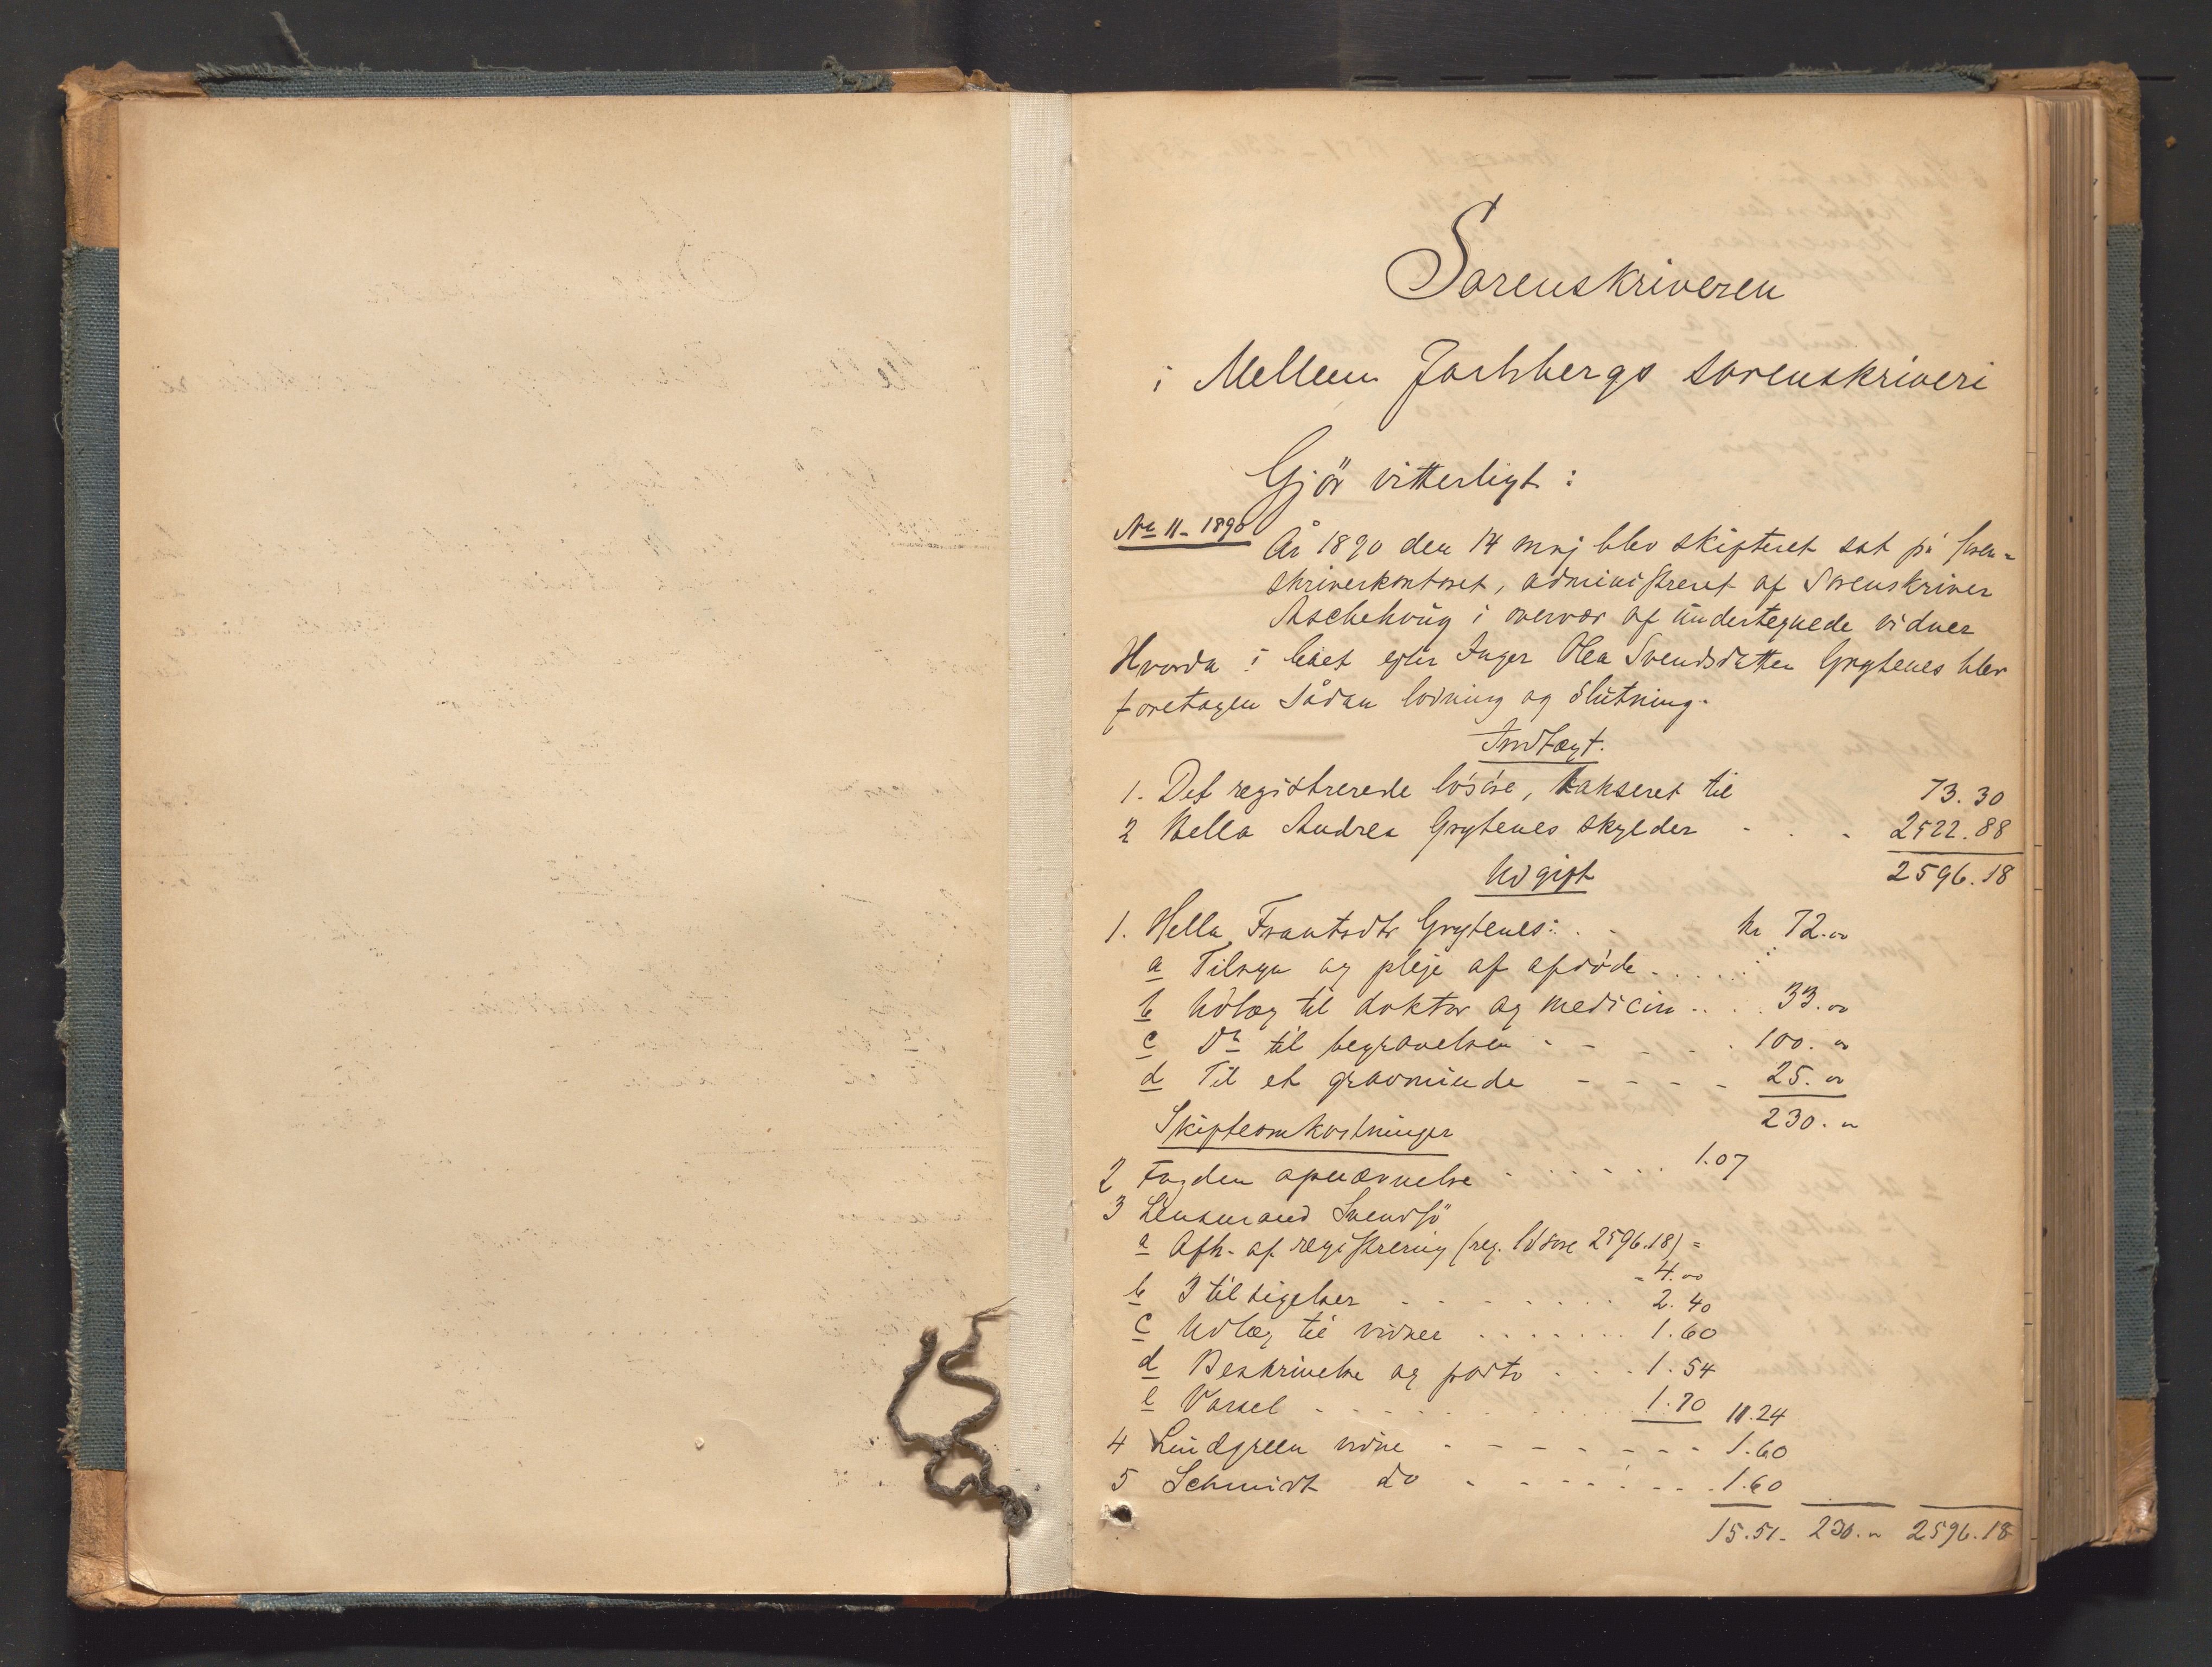 Sorenskriveren
i Mellem Jarlsbergs sorenskriveri
Gjör vitterligt:
No 11-1890
År 1890 den 14 maj blev skifteret sat på soren-
skriverkontoret, administreret af Sorenskriver
Aschehoug i overvær af undertegnede vidner
Hvorda i boet efter Inger Olea Svendsdatter Grytenes blev
foretagen sådan lodning og slutning.
Indtægt.
1. Det registrerede løsøre, takseret til 73.30
2 Hella Andrea Grytenes skylder - - - 2522.88
2596.18
Udgift
1. Hella Frantsdtr Grytenes: . - kr 72.00
a Tilsyn og pleje af afdøde . . . . .
b Udlæg til doktor og medicin . . . 33.00
c Do til begravelsen - - - - - 100.00
d Til et gravminde - - - - 25.00
230.00
Skifteomkostninger
2 Fogden opnævnelse . . . . . . 1.07
3 Lensmand
a Afh. af registrering (reg. løsøre 2596.18) =
- 4.00
b 3 tilsigelser - - - - - - - 2.40
c Udlæg til vidner . . . . . . . 1.60
d Beskrivelse og porto . . . 1.54
e Varsel - - - - - - - 1.70 11.24
4 Lindgreen vidne - - - - - - - - 1.60
5 Schmidt do - - - - - - - 1.60
15.51- 230.00 2596.18